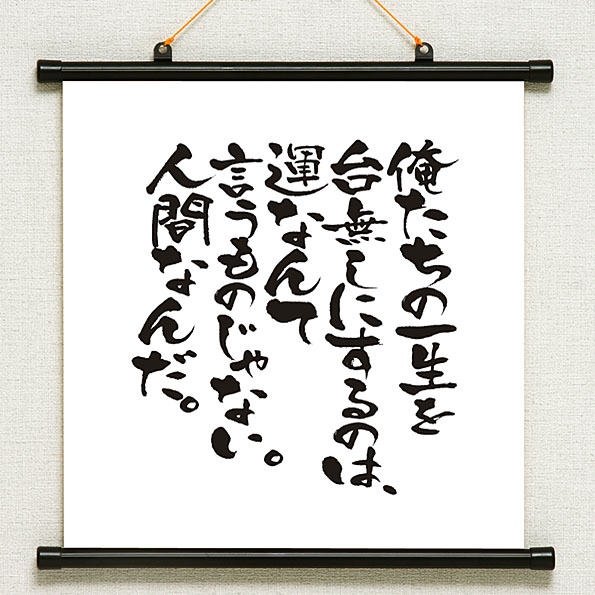 俺たちの一生を
台無しにするのは、
運なんて
言うものじゃない。
人間なんだ。